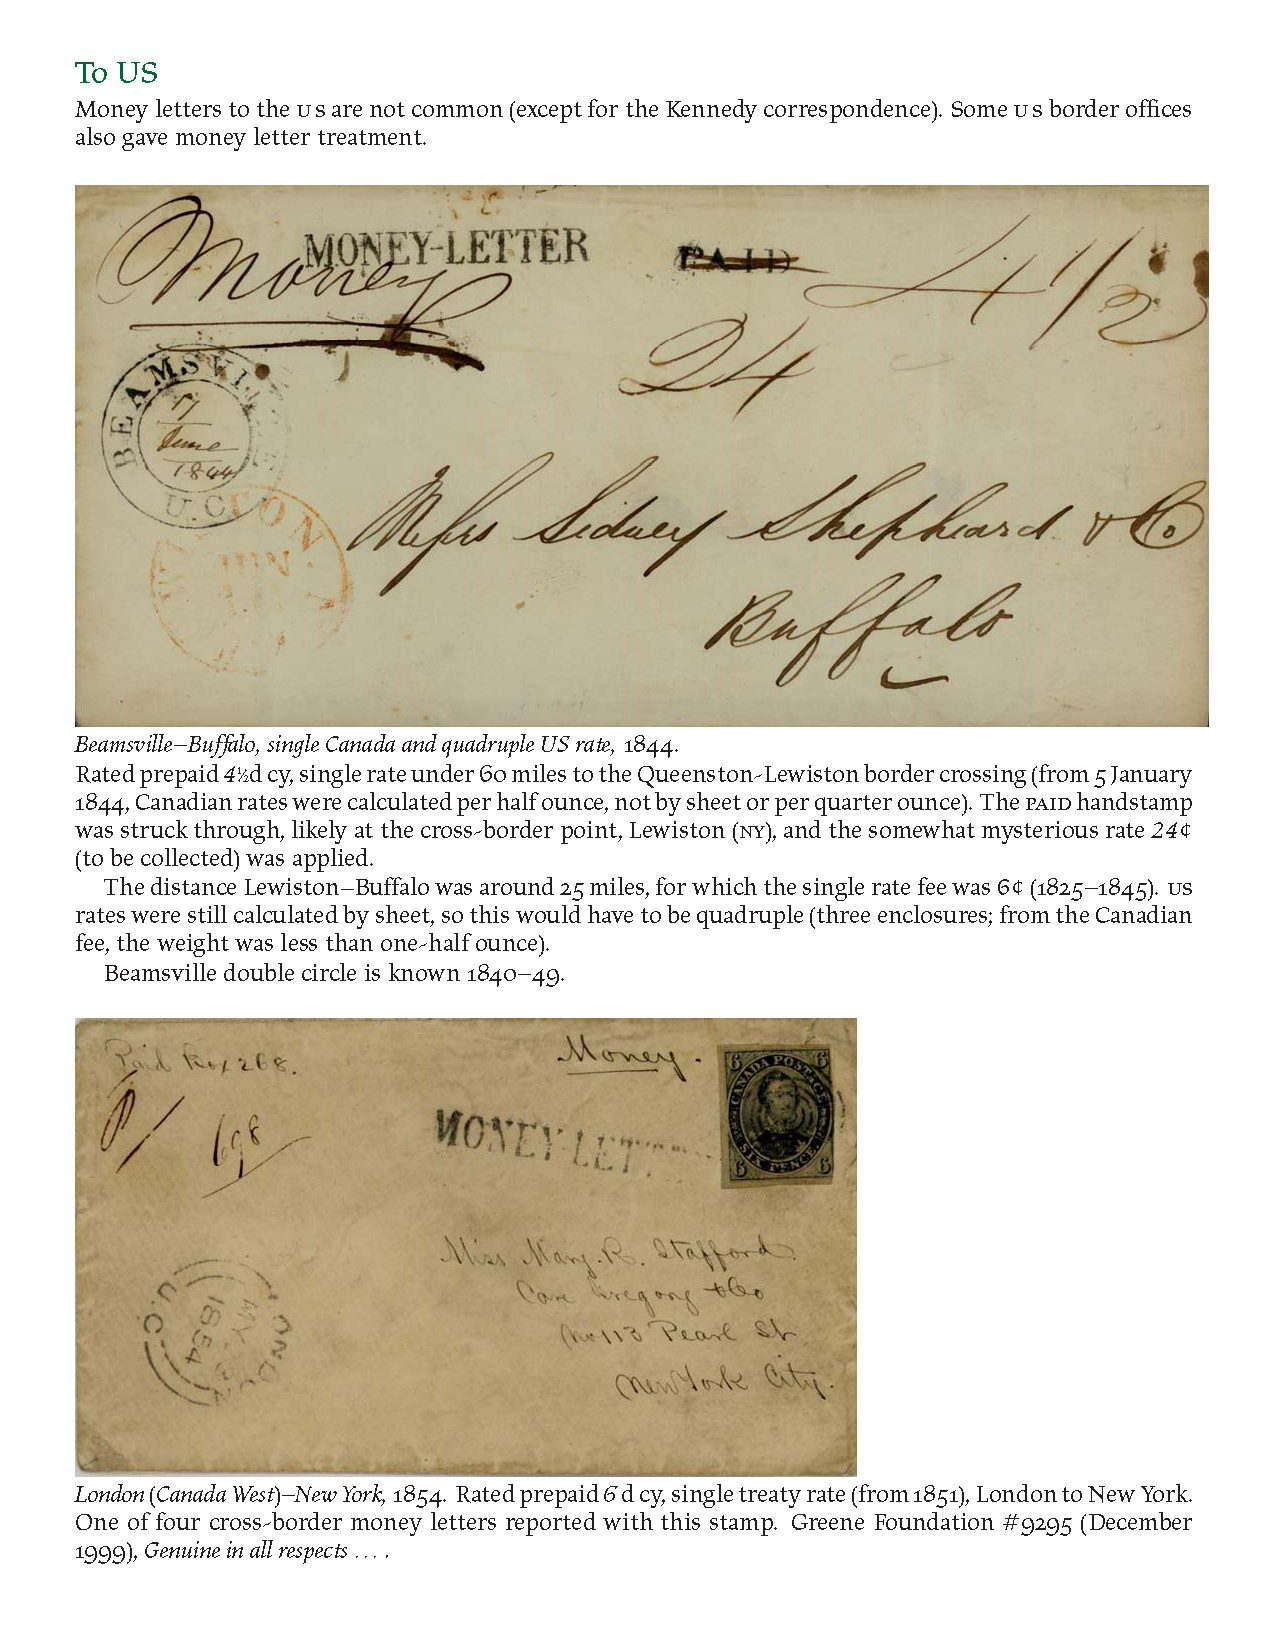 To US
Money letters to the US are not common (except for the Kennedy correspondence). Some US border offices
also gave money letter treatment.
Money
MONEY-LETTER
PAID
4 1/2
24
BEAMSVI
17
June
1844
U.C.
Messrs Sidney Shepheard & Co
Buffalo
Beamsville–Buffalo, single Canada and quadruple US rate, 1844.
Rated prepaid 4½d cy, single rate under 60 miles to the Queenston-Lewiston border crossing (from 5 January
1844, Canadian rates were calculated per half ounce, not by sheet or per quarter ounce). The PAID handstamp
was struck through, likely at the cross-border point, Lewiston (NY), and the somewhat mysterious rate 24¢
(to be collected) was applied.
The distance Lewiston–Buffalo was around 25 miles, for which the single rate fee was 6¢ (1825–1845). US
rates were still calculated by sheet, so this would have to be quadruple (three enclosures; from the Canadian
fee, the weight was less than one-half ounce).
Beamsville double circle is known 1840–49.
Paid Box 268.
698
Money.
MONEY-LET
6 6
CANADA POSTAGE
SIX PENCE
6 6
Miss Mary. R. Stafford
Care Gregory & Co
No 113 Pearl St
New York City.
ONDON
MY
1854
U.C.
London (Canada West)–New York, 1854. Rated prepaid 6d cy, single treaty rate (from 1851), London to New York.
One of four cross-border money letters reported with this stamp. Greene Foundation #9295 (December
1999), Genuine in all respects … .